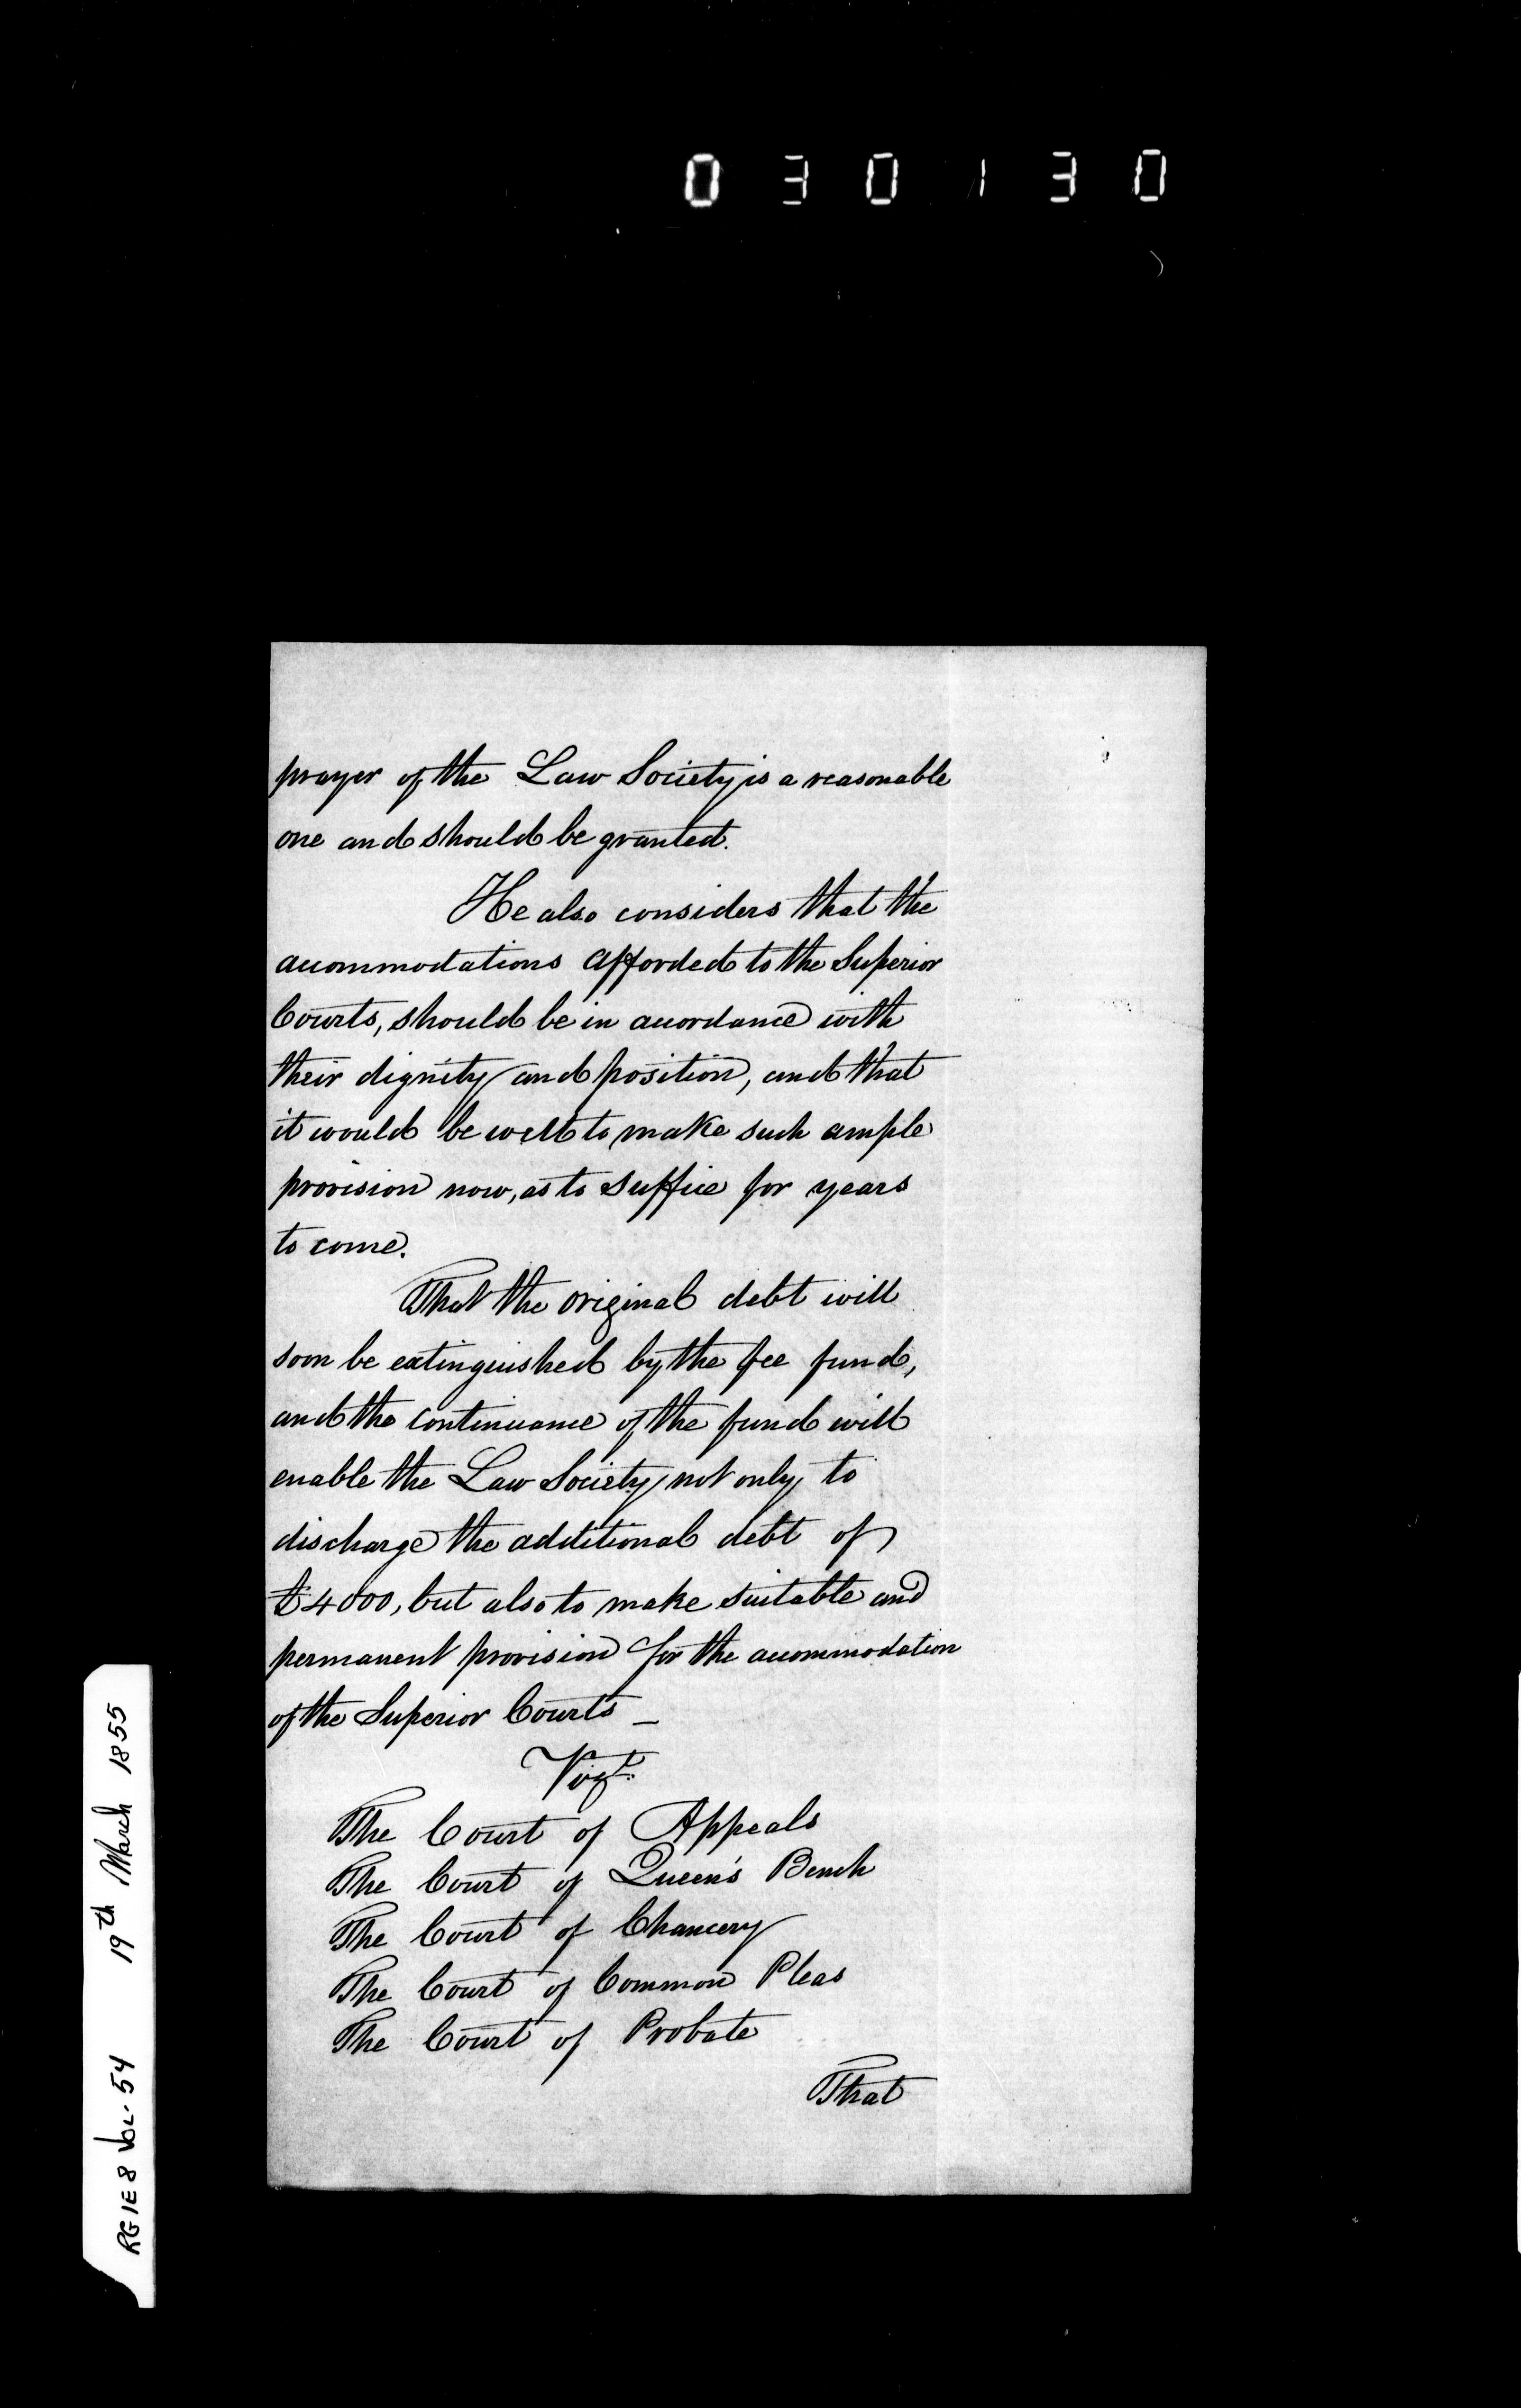 030130
prayer of the Law Society is a reasonable
one and should be granted.
He also considers that the
accommodations afforded to the Superior
Courts, should be in accordance with
their dignity and position, and that
it would be well to make such ample
provision now, as to suffice for years
to come.
That the original debt will
soon be extinguished by the fee fund,
and the continuance of the fund will
enable the Law Society not only to
discharge the additional debt of
£4000, but also to make suitable and
permanent provision for the accommodation
of the Superior Courts —
Vizt.
The Court of Appeals
The Court of Queen's Bench
The Court of Chancery
The Court of Common Pleas
The Court of Probate
That
RG 1 E 8 Vol. 54 19th March 1855